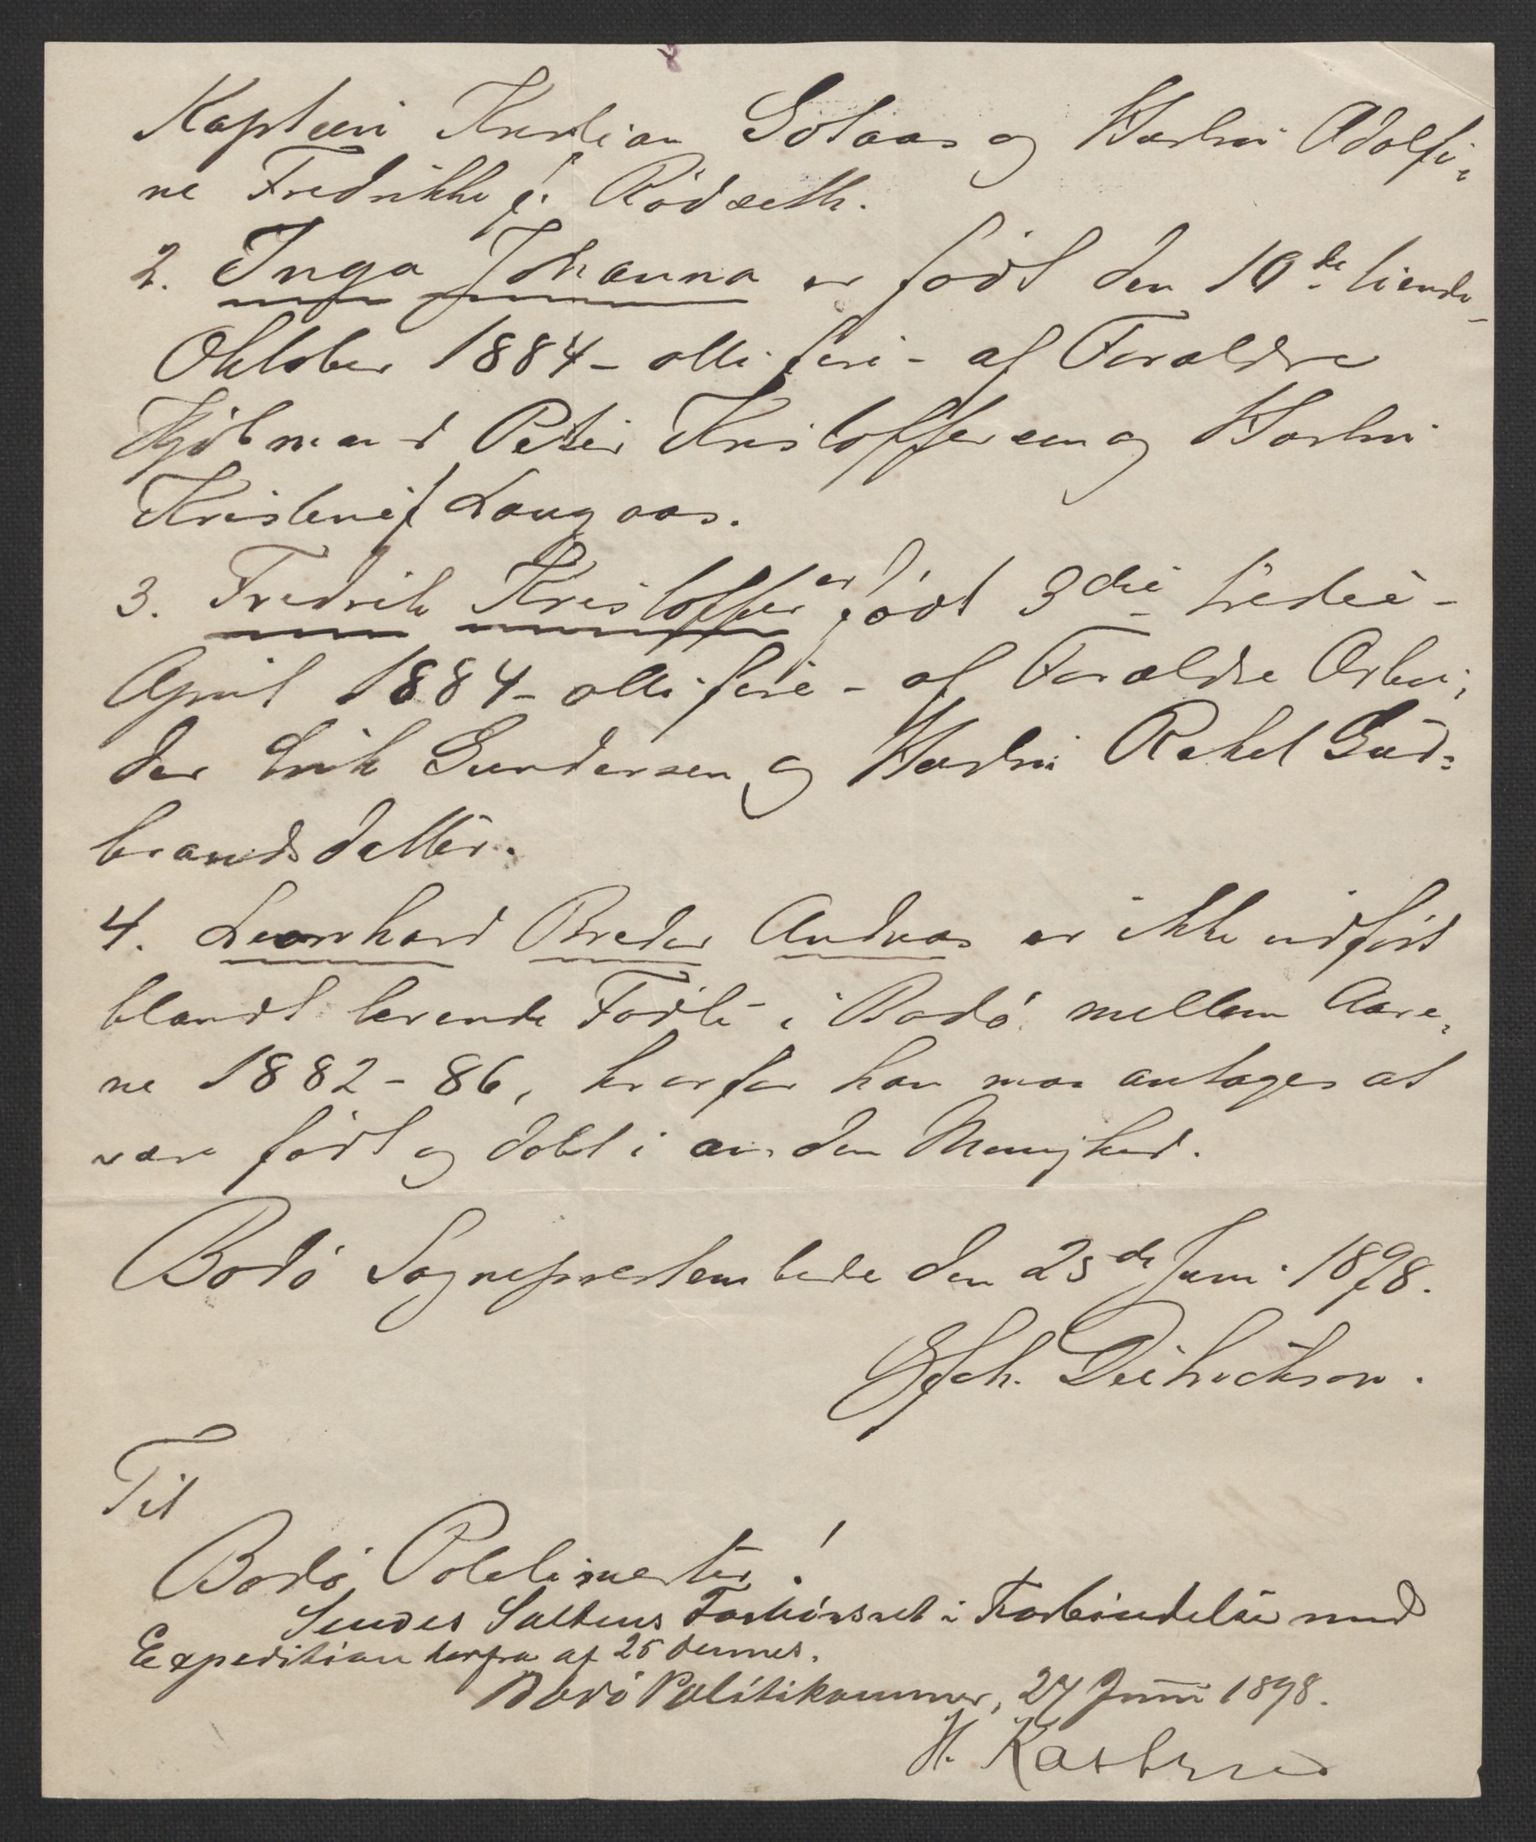 Kaptein Kristian Solaas og Hustru Adolfi-
ne Fredrikke f. Rödseth.
2. Inga Johanna er født den 10de tiende
Oktober 1884 - otti fire - af Forældre
Kjöbmand Peter Kristoffersen og Hustru
Kristine f Langaas.
3. Fredrik Kristoffer er født 3die tredie -
April 1884 - otti fire - af Forældre Arbei-
der Erik Gundersen og Hustru Rakel Gud-
brandsdatter.
4. Leonhard Breder Andreas er ikke indført
blandt levende Födte i Bodö mellem Aare-
ne 1882 - 86, hvorfor han maa antages at
være født og døbt i anden Menighed.
Bodö Sogneprestembede den 25de Juni 1898.
Dietrichson.
Til
Bodö Politimester!
Sendes Saltens Forhörsret i Forbindelse med
Expedition herfra af 25 dennes.
Bodö Politikammer, 27 Juni 1898.
H.